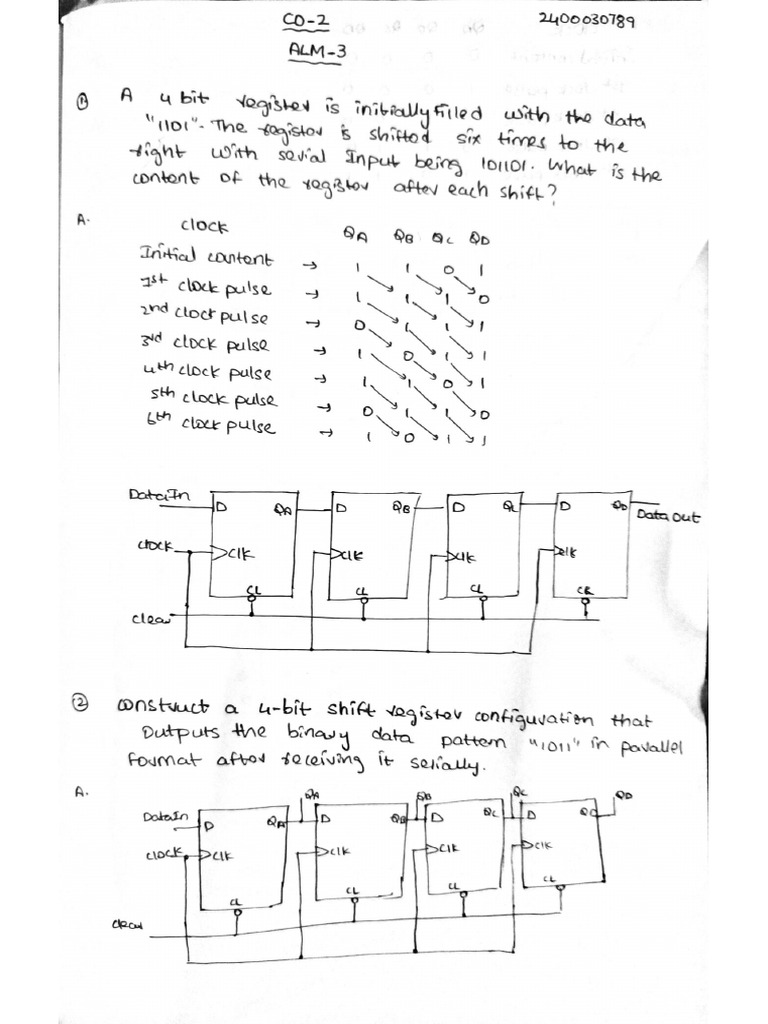 CO-2
2400030789
ALM-3
① A 4 bit register is initially filled with the data
"1101". The register is shifted six times to the
right with serial Input being 101101. What is the
content of the register after each shift?
A.
clock QA QB QC QD
Initial content → 1 1 0 1
1st clock pulse → 1 1 1 0
2nd clock pulse → 0 1 1 1
3rd clock pulse → 1 0 1 1
4th clock pulse → 1 1 0 1
5th clock pulse → 0 1 1 0
6th clock pulse → 1 0 1 1
Data In D QA D QB D QC D QD Data Out
clock CLK CLK CLK CLK
CL CL CL CL
clear
② construct a 4-bit shift register configuration that
Outputs the binary data pattern "1011" in parallel
format after receiving it serially.
A.
QA QB QC QD
Data In D QA D QB D QC D QC
clock CLK CLK CLK CLK
CL CL CL CL
clear